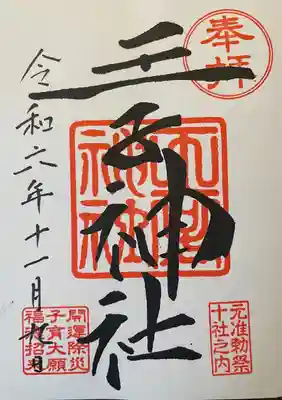 奉拝
元准勅祭
十社之内
王子神社
王子
神社
令和六年十一月九日
開運除災
子育大願
招来